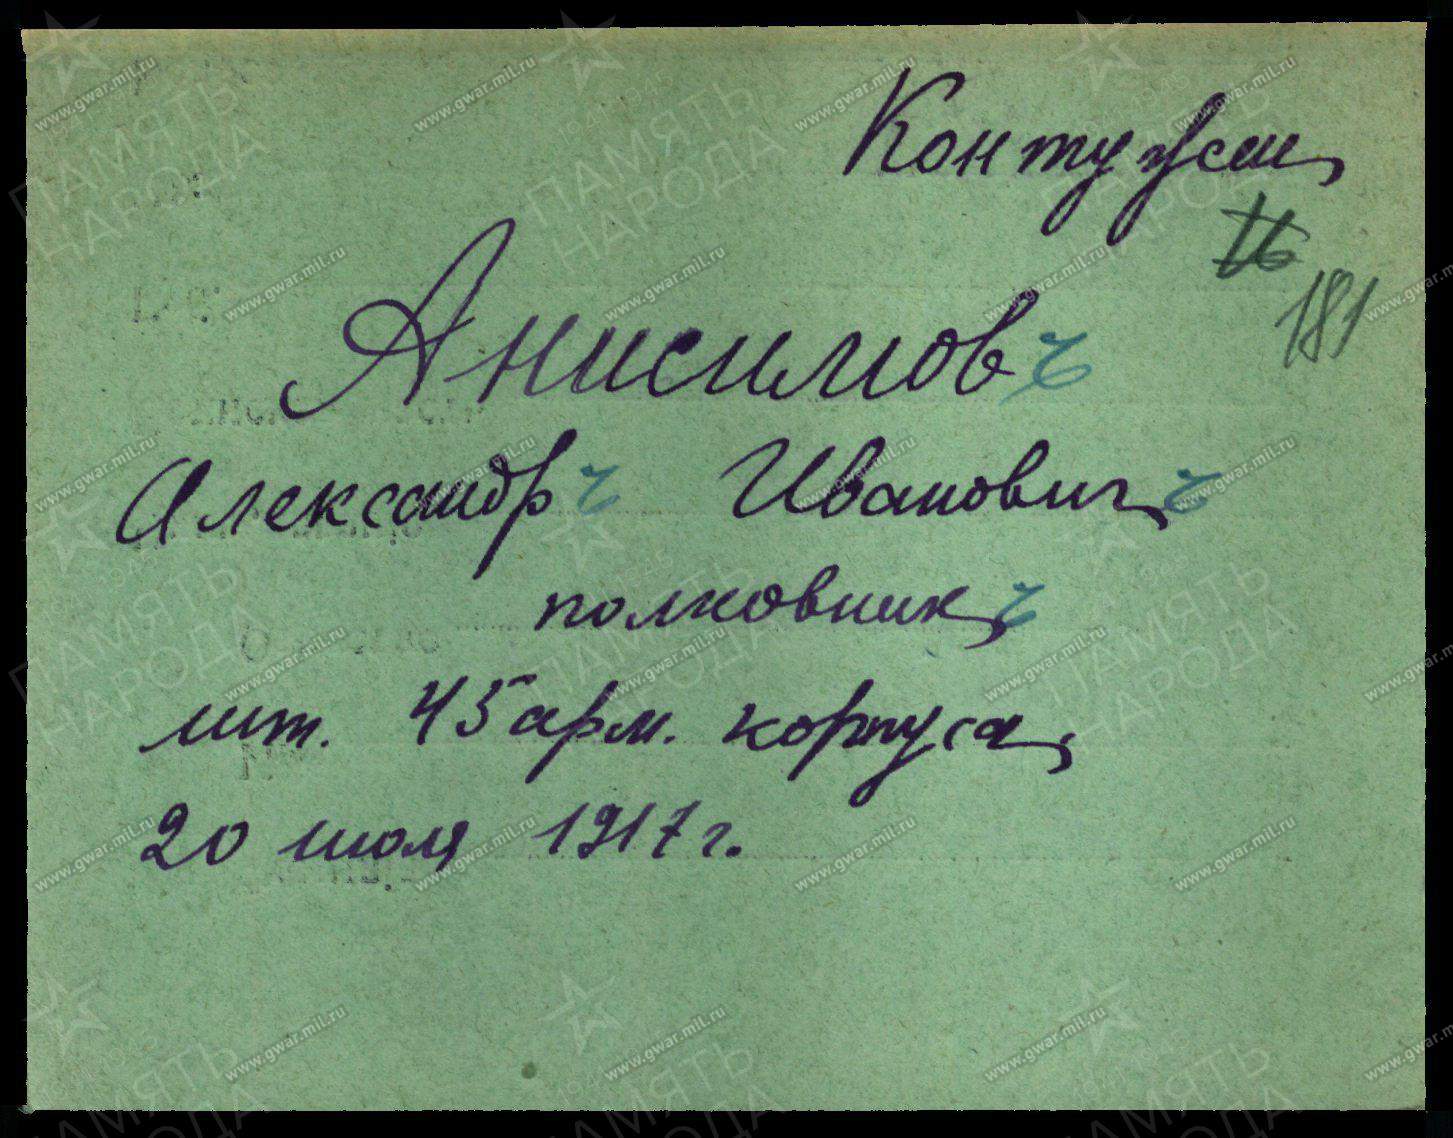 Контужен
16
181
Анисимовъ
Александръ Ивановичъ
полковникъ
шт. 45 арм. корпуса
20 июля 1917 г.
www.gwar.mil.ru
ПАМЯТЬ
НАРОДА